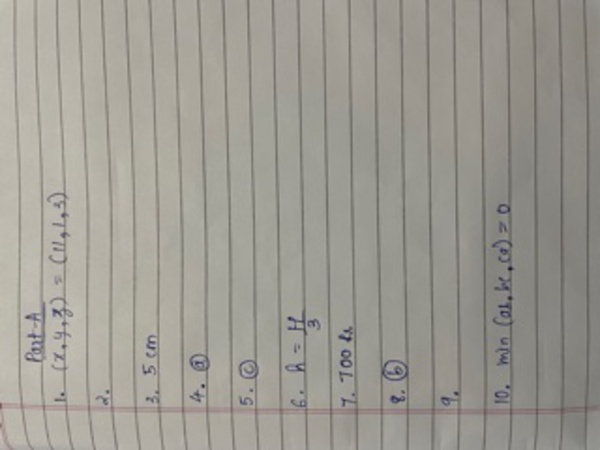 Part-A
1. (x, y, z) = (11, 1, 3)
2.
3. 5 cm
4. ⓐ
5. ⓒ
6. h = H/3
7. 700
8. ⓑ
9.
10. min (ab, bc, ca) = 0